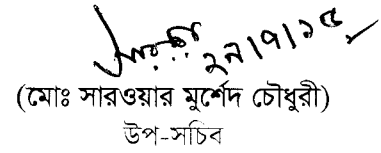 ২৭/৭/১৫
(মোঃ সারওয়ার মুর্শেদ চৌধুরী)
উপ-সচিব